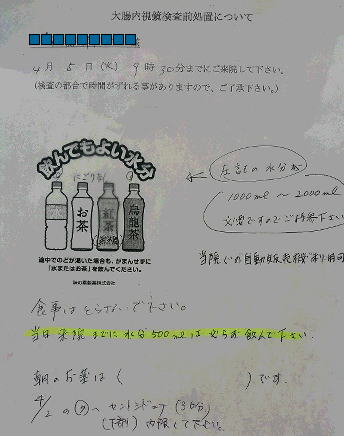 大腸内視鏡検査前処置について
4月5日(火) 9時30分までにご来院して下さい。
(検査の都合で時間がずれる事がありますので、ご了承下さい。)
飲んでもよい水分
にごりなし
水
お茶
紅茶
烏龍茶
途中でのどが渇いた場合も、がまんせずに
「水またはお茶」を飲んでください。
味の素製薬株式会社
左記の水分が
1000ml～2000ml
必要ですのでご持参下さい
当院での自動販売機
食事はとらないで下さい。
当日来院までに水分500mlは必らず飲んで下さい。
朝のお薬は( )です。
4/2の
(下剤)内服して下さい。